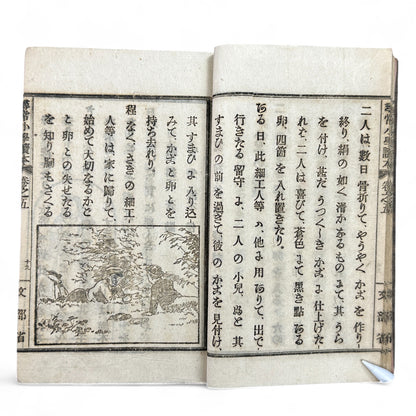 尋常小學讀本 卷之五
二人は、數日骨折りて、やうやくかごを作り
終り、絹の如く滑かなるものにて、其うら
を付け、甚だうつくしきかごに仕上げたり。
二人は、喜びて、蒼色にて黑き點ある
卵、四箇を入れ置きたり。
ある日、此細工人等の、他に用ありて、出で
行きたる留守に、二人の小兒、ふと其
すまひの前を過ぎて、彼のかごを見付け、
其すまひに入り込
みて、かごと卵とを
持ち去れり。
程なく、さきの細工
人等は、家に歸りて、
始めて大切なるかご
と卵との失せたる
を知り、胸もさくる
尋常小學讀本 卷之五
文部省